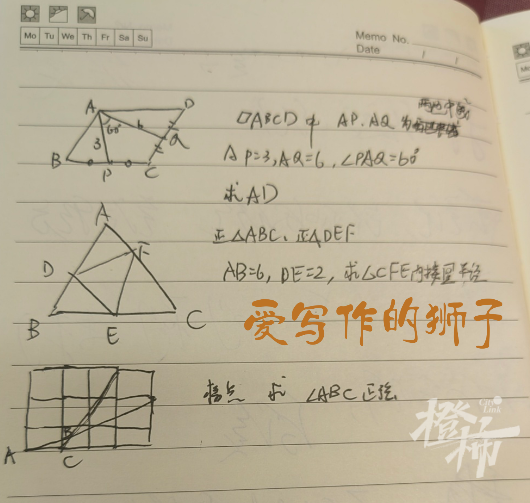 Mo Tu We Th Fr Sa Su
Memo No.
Date / /
A D
60° 6
3 Q
B P C
▱ABCD中 AP、AQ为两边中线
AP=3, AQ=6, ∠PAQ=60°
求AD
A
正△ABC、正△DEF
D F
AB=6, DE=2, 求△CFE内接圆半径
B E C
爱写作的狮子
格点 求 ∠ABC正弦
B
A C
橙柿